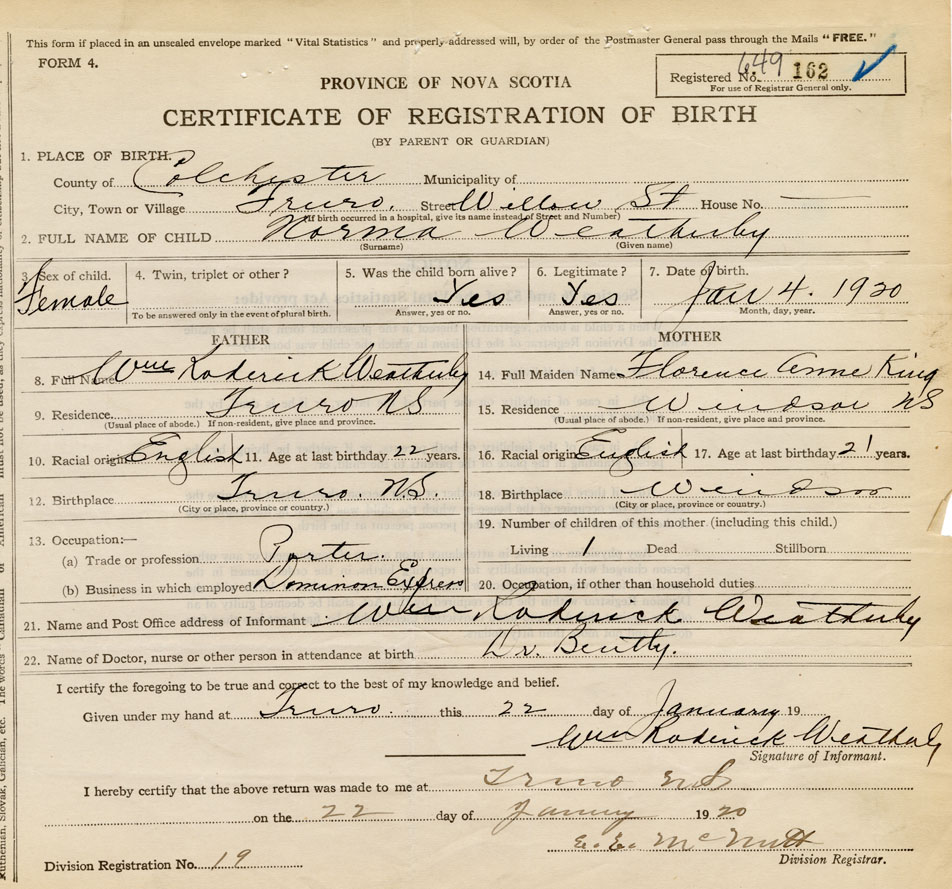 This form if placed in an unsealed envelope marked "Vital Statistics" and properly addressed will, by order of the Postmaster General pass through the Mails "FREE."
FORM 4.
649
Registered No. 162
For use of Registrar General only.
PROVINCE OF NOVA SCOTIA
CERTIFICATE OF REGISTRATION OF BIRTH
(BY PARENT OR GUARDIAN)
1. PLACE OF BIRTH.
County of Colchester Municipality of
City, Town or Village Truro. Street Willow St House No.
(If birth occurred in a hospital, give its name instead of Street and Number)
2. FULL NAME OF CHILD Norma Weatherby
(Surname) (Given name)
3. Sex of child. 4. Twin, triplet or other? 5. Was the child born alive? 6. Legitimate? 7. Date of birth.
Female Yes Yes Jan 4. 1920
To be answered only in the event of plural birth. Answer, yes or no. Answer, yes or no. Month, day, year.
FATHER MOTHER
8. Full Name Wm Roderick Weatherby 14. Full Maiden Name Florence Anne King
9. Residence. Truro NS 15. Residence Windsor NS
(Usual place of abode.) If non-resident, give place and province. (Usual place of abode.) If non-resident, give place and province.
10. Racial origin English 11. Age at last birthday 22 years. 16. Racial origin English 17. Age at last birthday 21 years.
12. Birthplace Truro. N.S. 18. Birthplace Windsor
(City or place, province or country.) (City or place, province or country.)
13. Occupation:— 19. Number of children of this mother (including this child.)
(a) Trade or profession Porter. Living 1 Dead Stillborn
(b) Business in which employed Dominion Express 20. Occupation, if other than household duties
21. Name and Post Office address of Informant Wm Roderick Weatherby
22. Name of Doctor, nurse or other person in attendance at birth Dr. Bently.
I certify the foregoing to be true and correct to the best of my knowledge and belief.
Given under my hand at Truro. this 22 day of January 19
Wm Roderick Weatherby
Signature of Informant.
I hereby certify that the above return was made to me at Truro NS
on the 22 day of January 1920
E. E. McNutt
Division Registration No. 19 Division Registrar.